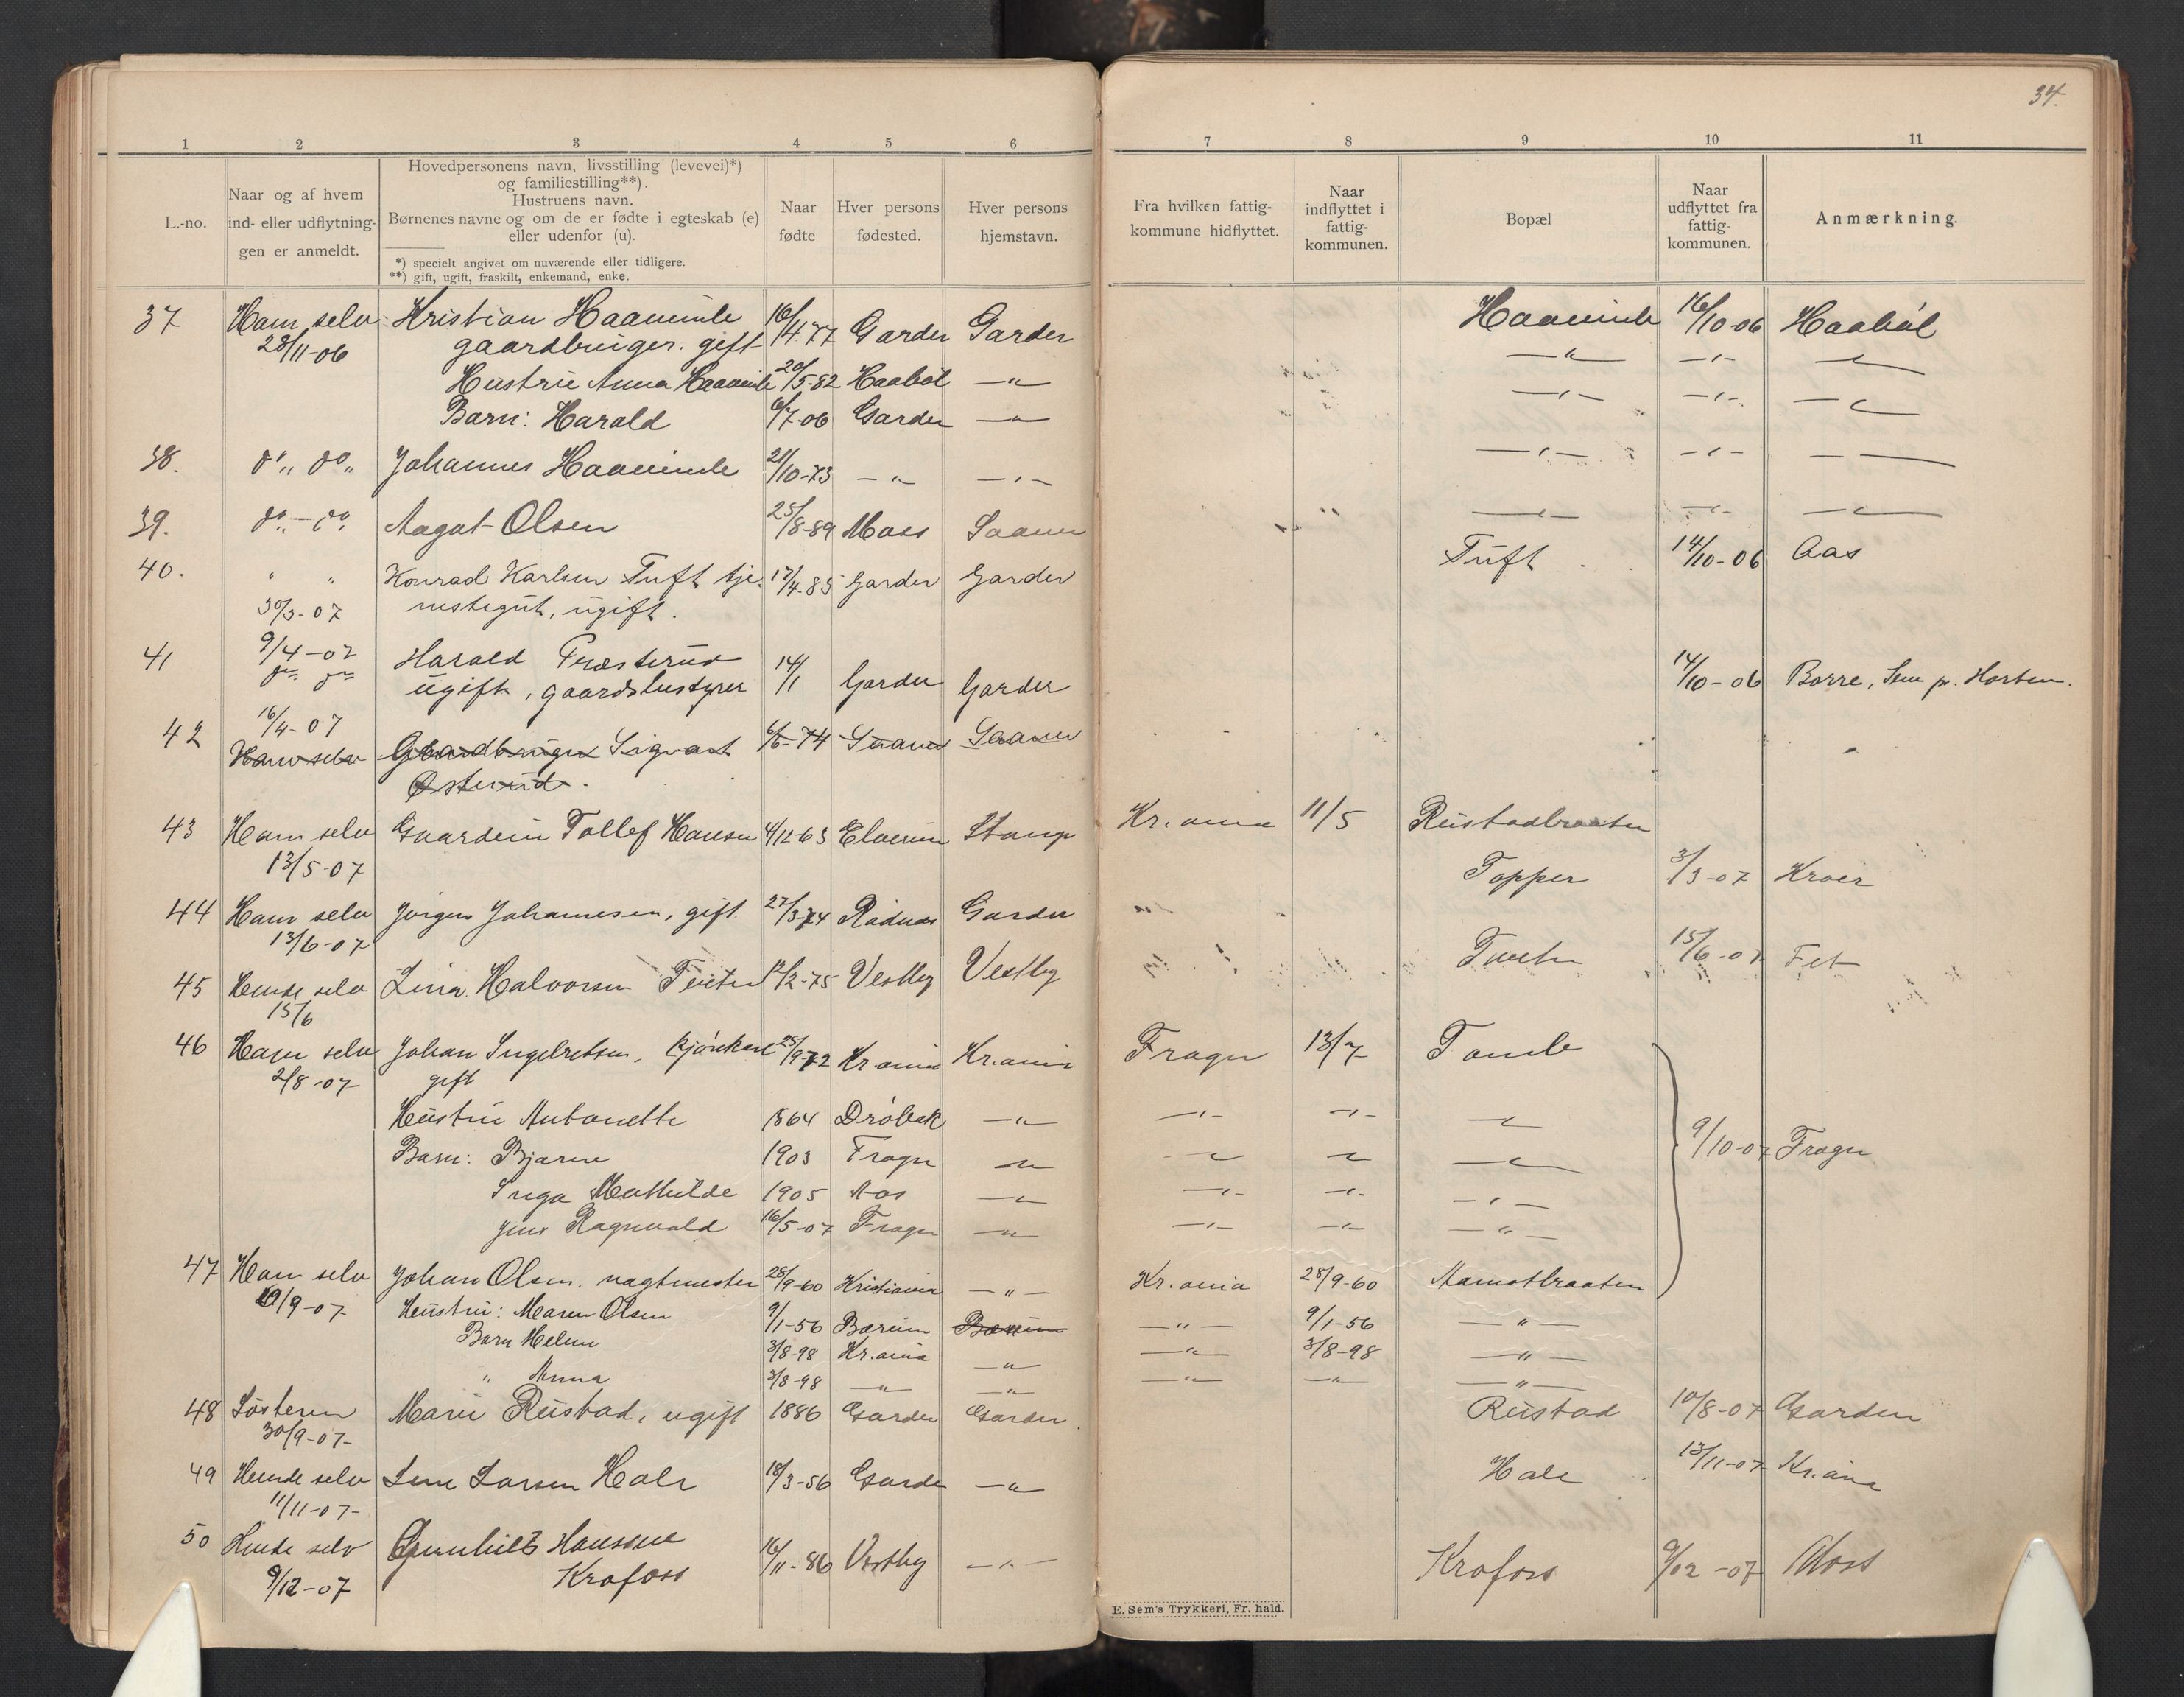 34.
1 2 3 4 5 6 7 8 9 10 11
L.-no.
Naar og af hvem
ind- eller udflytnin-
gen er anmeldt.
Hovedpersonens navn, livsstilling (levevei)*)
og familiestilling**).
Hustruens navn.
Børnenes navne og om de er fødte i egteskab (e)
eller udenfor (u).
*) specielt angivet om nuværende eller tidligere.
**) gift, ugift, fraskilt, enkemand, enke.
Naar
fødte
Hver persons
fødested.
Hver persons
hjemstavn.
Fra hvilken fattig-
kommune hidflyttet.
Naar
indflyttet i
fattig-
kommunen.
Bopæl
Naar
udflyttet fra
fattig-
kommunen.
Anmærkning.
37 Ham selv Kristian 16/4-77 Garder Garder 16/10-06 Haabøl
28/11-06 gaardbruger. gift — " — — " — —
Hustru Anna 20/5-82 Haabøl — " — — " — — " — —
Barn: Harald 6/7-06 Garder — " —
38. do " do " Johannes 21/10-73 — " — — " — — " — — " — — —
39. do " — do " Aagot Olsen 25/8-89 Moss Saaner — " — — " — — " —
40. " " Konrad Karlsen Tuft tje- 17/4-85 Garder Garder Tuft 14/10-06 Aas
30/3-07 nestegut, ugift.
41 9/4-07 Harald 14/1 Garder Garder 14/10-06 Borre, Sem p. Horten.
do do ugift, gaardsbestyrer
42 16/4-07 Gaardbruger Sigvart 6/6-74 Saaner Saaner
Ham selv Østerud.
43 Ham selv Tollef Hansen 4/12 63 Elverum Stange Kr.ania 11/5 Rustadbraaten
13/5-07
44 Ham selv Jørgen Johannesen, gift 27/3-74 Raadnæs Garder Topper 3/3-07 Kroer
13/6-07
45 Hende selv Lina Halvorsen 12/2-75 Vestby Vestby 15/6-07 Fet
15/6
46 Ham selv Johan Ingebretsen, kjørekarl 25/9-72 Kr.ania Kr.ania Frogn 13/7 Tomle
2/8-07 gift
Hustru Antonette 1864 Drøbak — " — — " — — " — — " —
Barn: Bjarne 1903 Frogn — " — — " — — " — — " — 9/10-07 Frogn
Inga Mathilde 1905 Aas — " — — " — — " — — " —
Jens Ragnvald 16/5-07 Frogn — " — — " — — " — — " —
47 Ham selv Johan Olsen. vagtmester 28/9-60 Kristiania — " — Kr.ania 28/9-60 Aamotbraaten
19/9-07 Hustru: Maren Olsen 9/1-56 Bærum Bærum — " — 9/1-56 — " —
Barn Helene 3/8-98 Kr.ania — " — — " — 3/8-98 — " —
" Anna 3/8-98 — " — — " — — " — — " — — " —
48 Søsteren Marie Rustad, ugift 1886 Garder Garder. Rustad 10/8-07 Garden
30/9-07-
49 Hende selv Line Larsen Hale 18/3-56 Garder — " — Hale 13/11-07 Kr.ania
11/11-07-
50 Hende selv Gunhild Hanssen 16/11-86 Vestby — " — Krofoss 9/12-07 Moss
9/12-07 Krofoss
E. Sem's Trykkeri, Fr. hald.